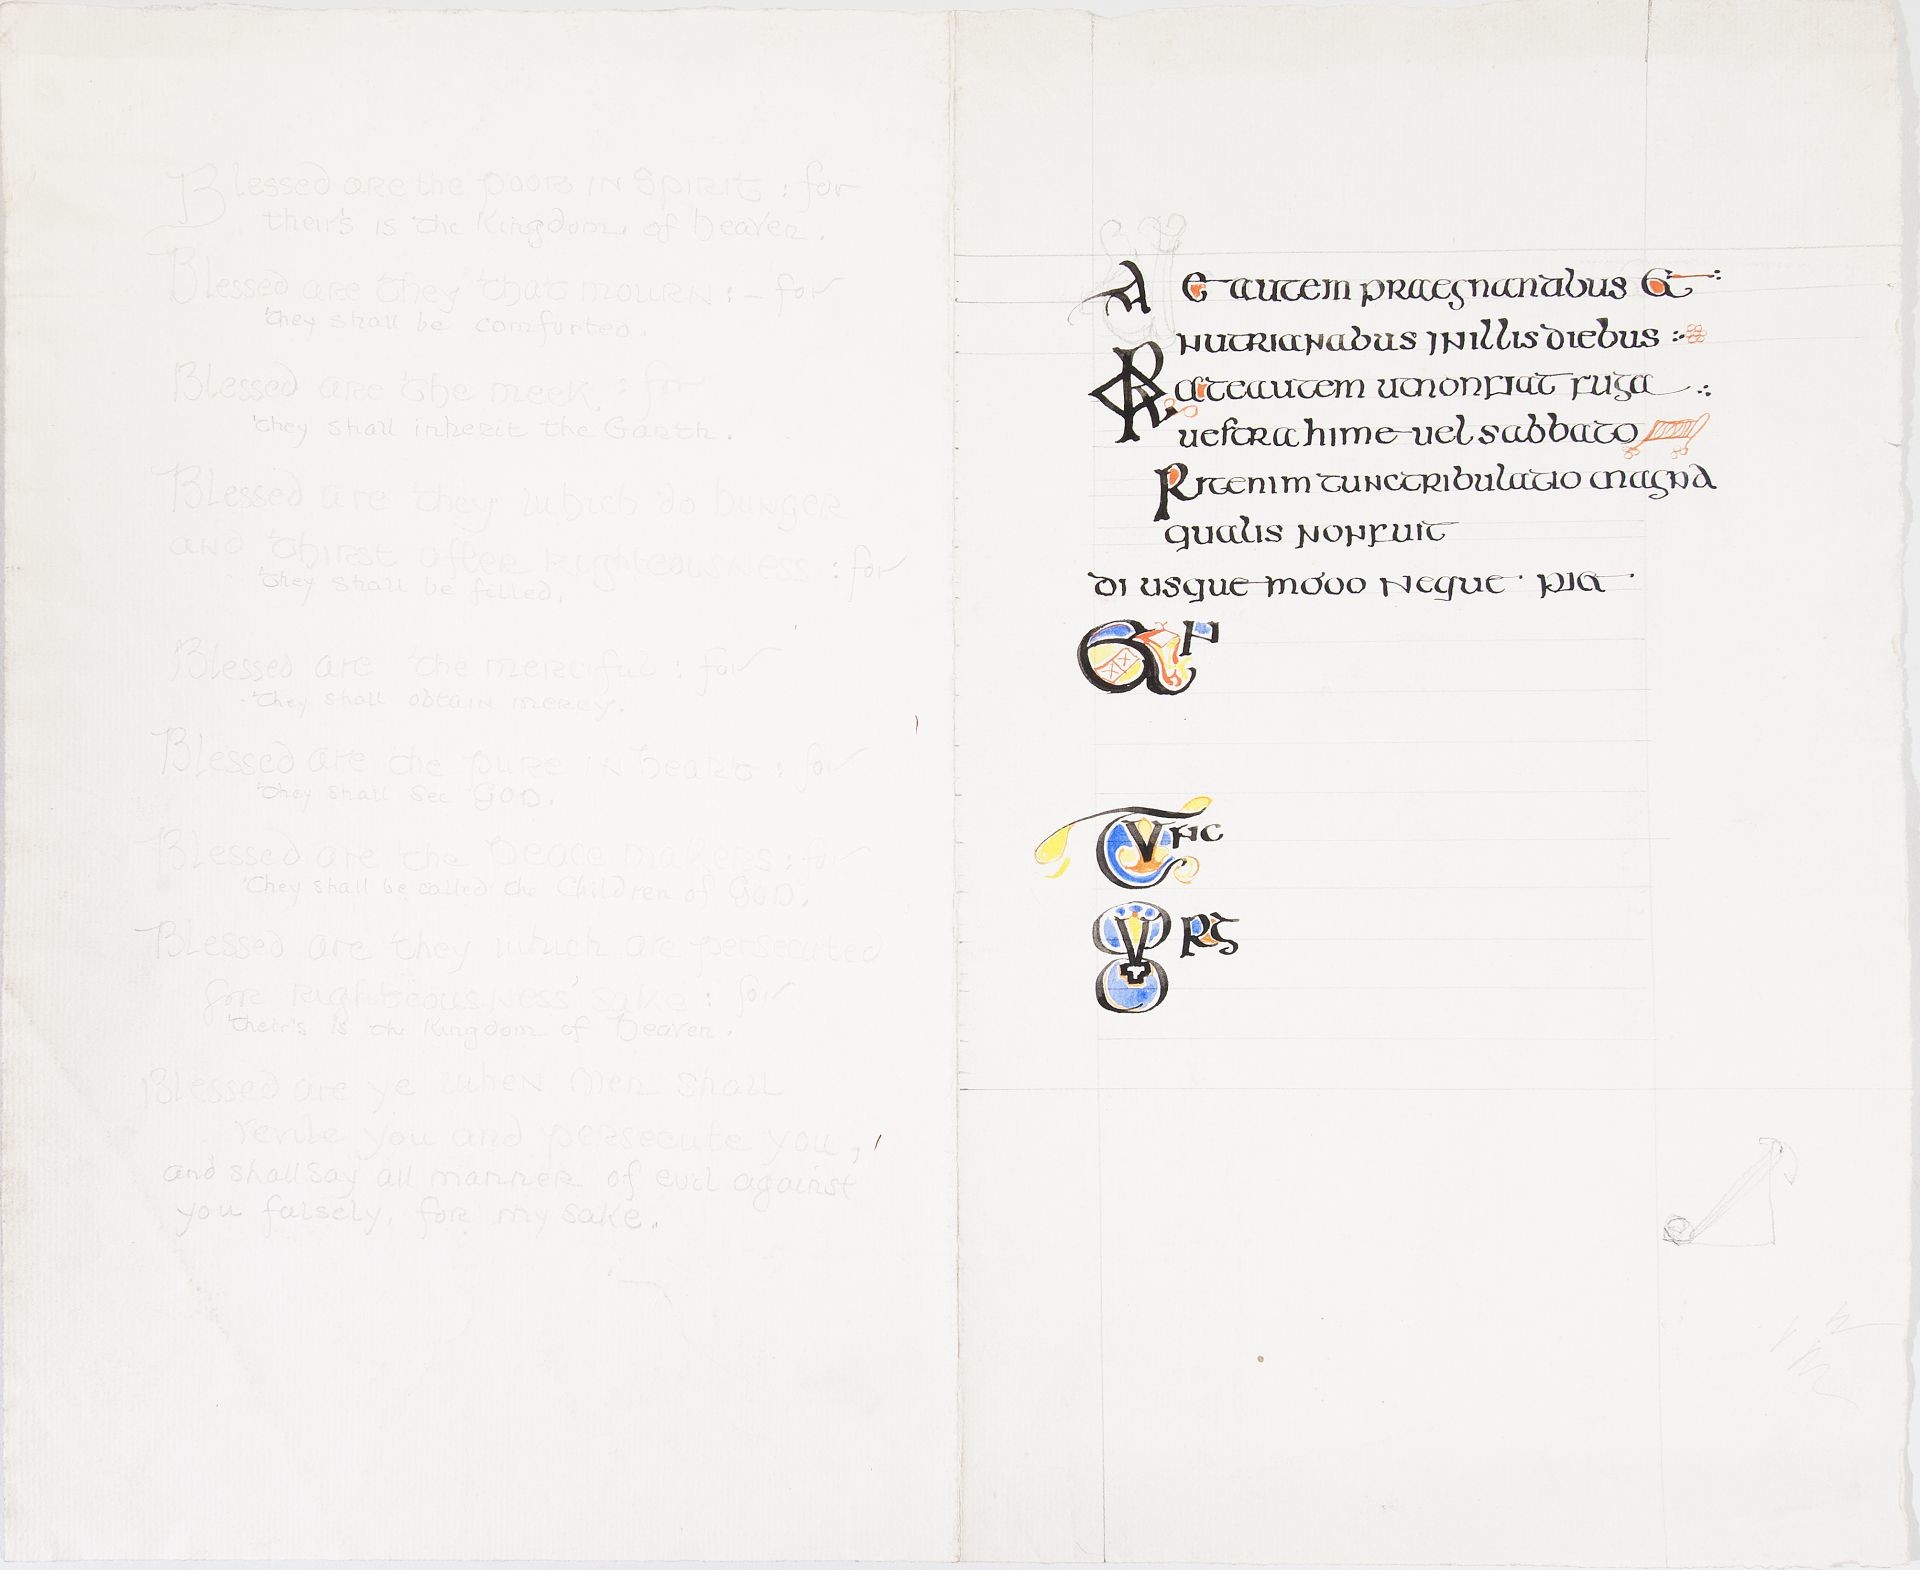 Blessed are the poor in Spirit : for
their's is the Kingdom of heaven.
Blessed are they that mourn : - for
they shall be comforted.
Blessed are the meek : for
they shall inherit the Earth.
Blessed are they which do hunger
and thirst after Righteousness : for
they shall be filled.
Blessed are the merciful : for
they shall obtain mercy.
Blessed are the pure in heart : for
they shall see GOD.
Blessed are the Peace makers : for
they shall be called the Children of GOD.
Blessed are they which are persecuted
for Righteousness' sake : for
their's is the Kingdom of heaven.
Blessed are ye when Men shall
revile you and persecute you,
and shall say all manner of evil against
you falsely, for my sake.
Ae autem praegnantibus et
nutrianabus in illis diebus
Rateautem utnonfiat fuga
uestra hime uel sabbato
Eritenim tunctribulatio magna
qualis nonfuit
di usque modo neque fia
et
Tunc